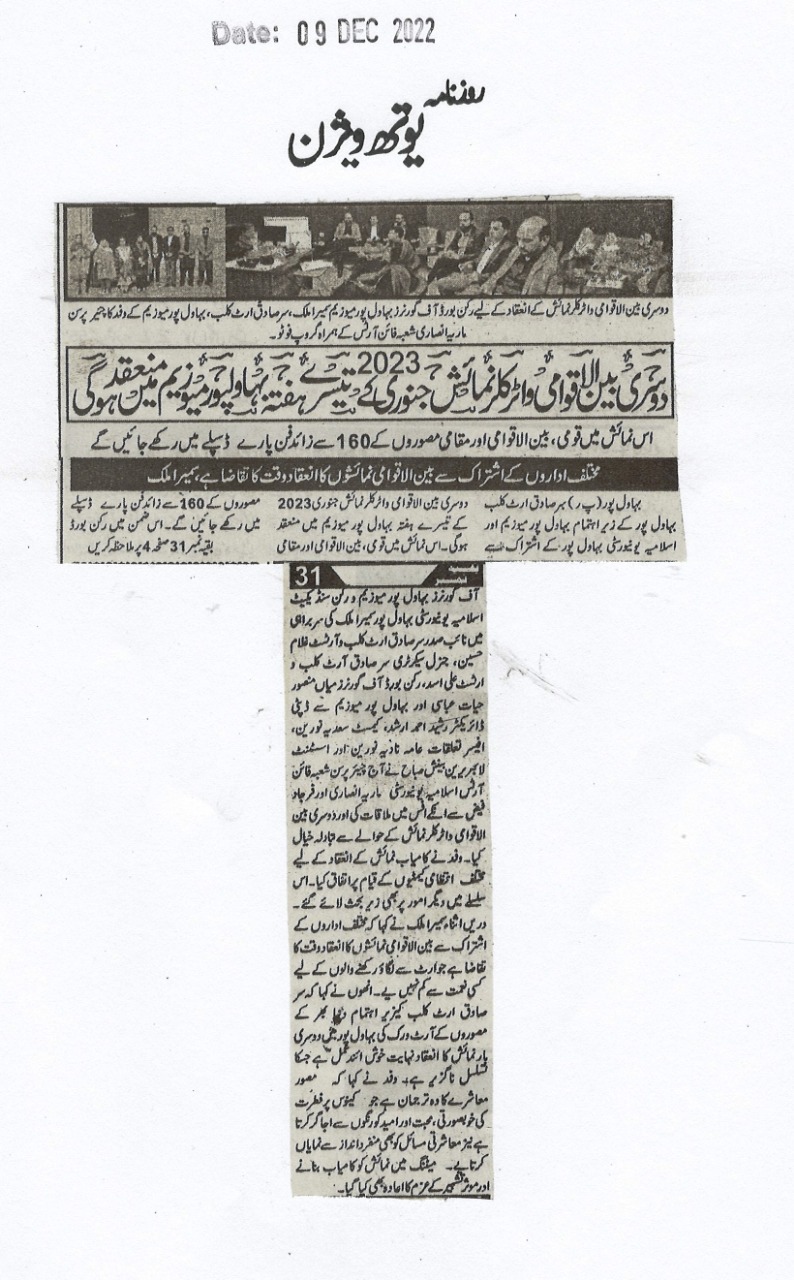 Date: 09 DEC 2022
روزنامہ
یوتھ ویژن
دوسری بین الاقوامی واٹر کلر نمائش کے انعقاد کے لیے رکن بورڈ آف گورنرز بہاول پور میوزیم سمیرا ملک، سر صادق ارٹ کلب، بہاول پور میوزیم کے وفد کا چئیر پرسن
ماریا انصاری شعبہ فائن آرٹس کے ہمراہ گروپ فوٹو۔
دوسری بین الاقوامی واٹر کلر نمائش جنوری 2023 کے تیسرے ہفتہ بہاولپور میوزیم میں منعقد ہوگی
اس نمائش میں قومی، بین الاقوامی اور مقامی مصوروں کے 160 سے زائد فن پارے ڈسپلے میں رکھے جائیں گے
مختلف اداروں کے اشتراک سے بین الاقوامی نمائشوں کا انعقاد وقت کا تقاضا ہے، سمیرا ملک
بہاول پور (پ ر) سر صادق ارٹ کلب
بہاول پور کے زیر اہتمام بہاول پور میوزیم اور
اسلامیہ یونیورسٹی بہاول پور کے اشتراک سے
دوسری بین الاقوامی واٹر کلر نمائش جنوری 2023
کے تیسرے ہفتہ بہاول پور میوزیم میں منعقد
ہوگی۔ اس نمائش میں قومی، بین الاقوامی اور مقامی
مصوروں کے 160 سے زائد فن پارے ڈسپلے
میں رکھے جائیں گے۔ اس ضمن میں رکن بورڈ
بقیہ نمبر 31 صفحہ 4 پر ملاحظہ کریں
بقیہ نمبر 31
آف گورنرز بہاول پور میوزیم و رکن سنڈیکیٹ
اسلامیہ یونیورسٹی بہاول پور سمیرا ملک کی سربراہی
میں نائب صدر سر صادق ارٹ کلب و آرٹسٹ غلام
حسین، جنرل سیکرٹری سر صادق آرٹ کلب و
ارٹسٹ علی اسد، رکن بورڈ آف گورنرز میاں منصور
حیات عباسی اور بہاول پور میوزیم سے ڈپٹی
ڈائریکٹر رشید احمد ارشد، کیمسٹ سعدیہ نورین،
افیسر تعلقات عامہ نادیہ نورین اور اسٹنٹ
لائبریرین بینش صباح نے آج چیئر پرسن شعبہ فائن
آرٹس اسلامیہ یونیورسٹی ماریہ انصاری اور فرجاد
فیض سے انکے افس میں ملاقات کی اور دوسری بین
الاقوامی واٹر کلر نمائش کے حوالے سے تبادلہ خیال
کیا۔ وفد نے کامیاب نمائش کے انعقاد کے لیے
مختلف انتظامی کمیٹیوں کے قیام پر اتفاق کیا۔ اس
سلسلے میں دیگر امور پر بھی زیر بحث لائے گئے۔
دریں اثناء سمیرا ملک نے کہا کہ مختلف اداروں کے
اشتراک سے بین الاقوامی نمائشوں کا انعقاد وقت کا
تقاضا ہے جو ارٹ سے لگاؤ رکھنے والوں کے لیے
کسی نعمت سے کم نہیں ہے۔ انھوں نے کہا کہ سر
صادق ارٹ کلب کیزیر اہتمام دنیا بھر کے
مصوروں کے آرٹ ورک کی بہاول پور میں دوسری
بار نمائش کا انعقاد نہایت خوش ائند عمل ہے جسکا
تسلسل ناگزیر ہے، وفد نے کہا کہ مصور
معاشرے کا وہ ترجمان ہے جو کینوس پر فطرت
کی خوبصورتی، محبت اور امید کو رنگوں سے اجاگر کرتا
ہے نیز معاشرتی مسائل کو بھی منفرد انداز سے نمایاں
کرتا ہے۔ میٹنگ میں نمائش کو کامیاب بنانے
اور موثر تشہیر کے عزم کا اعادہ بھی کیا گیا۔